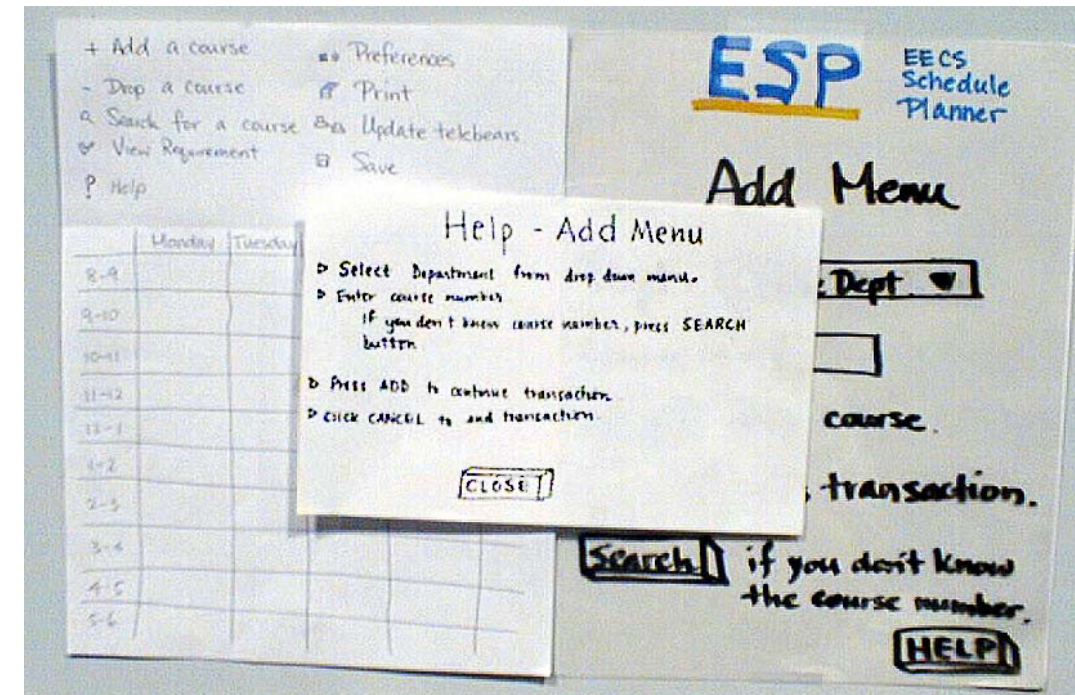 + Add a course
- Drop a course
Search for a course
View Requirement
? Help
Preferences
Print
Update telebears
Save
ESP
EECS
Schedule
Planner
Add Menu
Dept
course.
transaction.
Search if you don't know
the course number.
HELP
Help - Add Menu
Select Department from drop down menu.
Enter course number
If you don't know course number, press SEARCH
button
Press ADD to continue transaction
Click CANCEL to end transaction.
CLOSE
Monday Tuesday
8-9
9-10
10-11
11-12
12-1
1-2
2-3
3-4
4-5
5-6